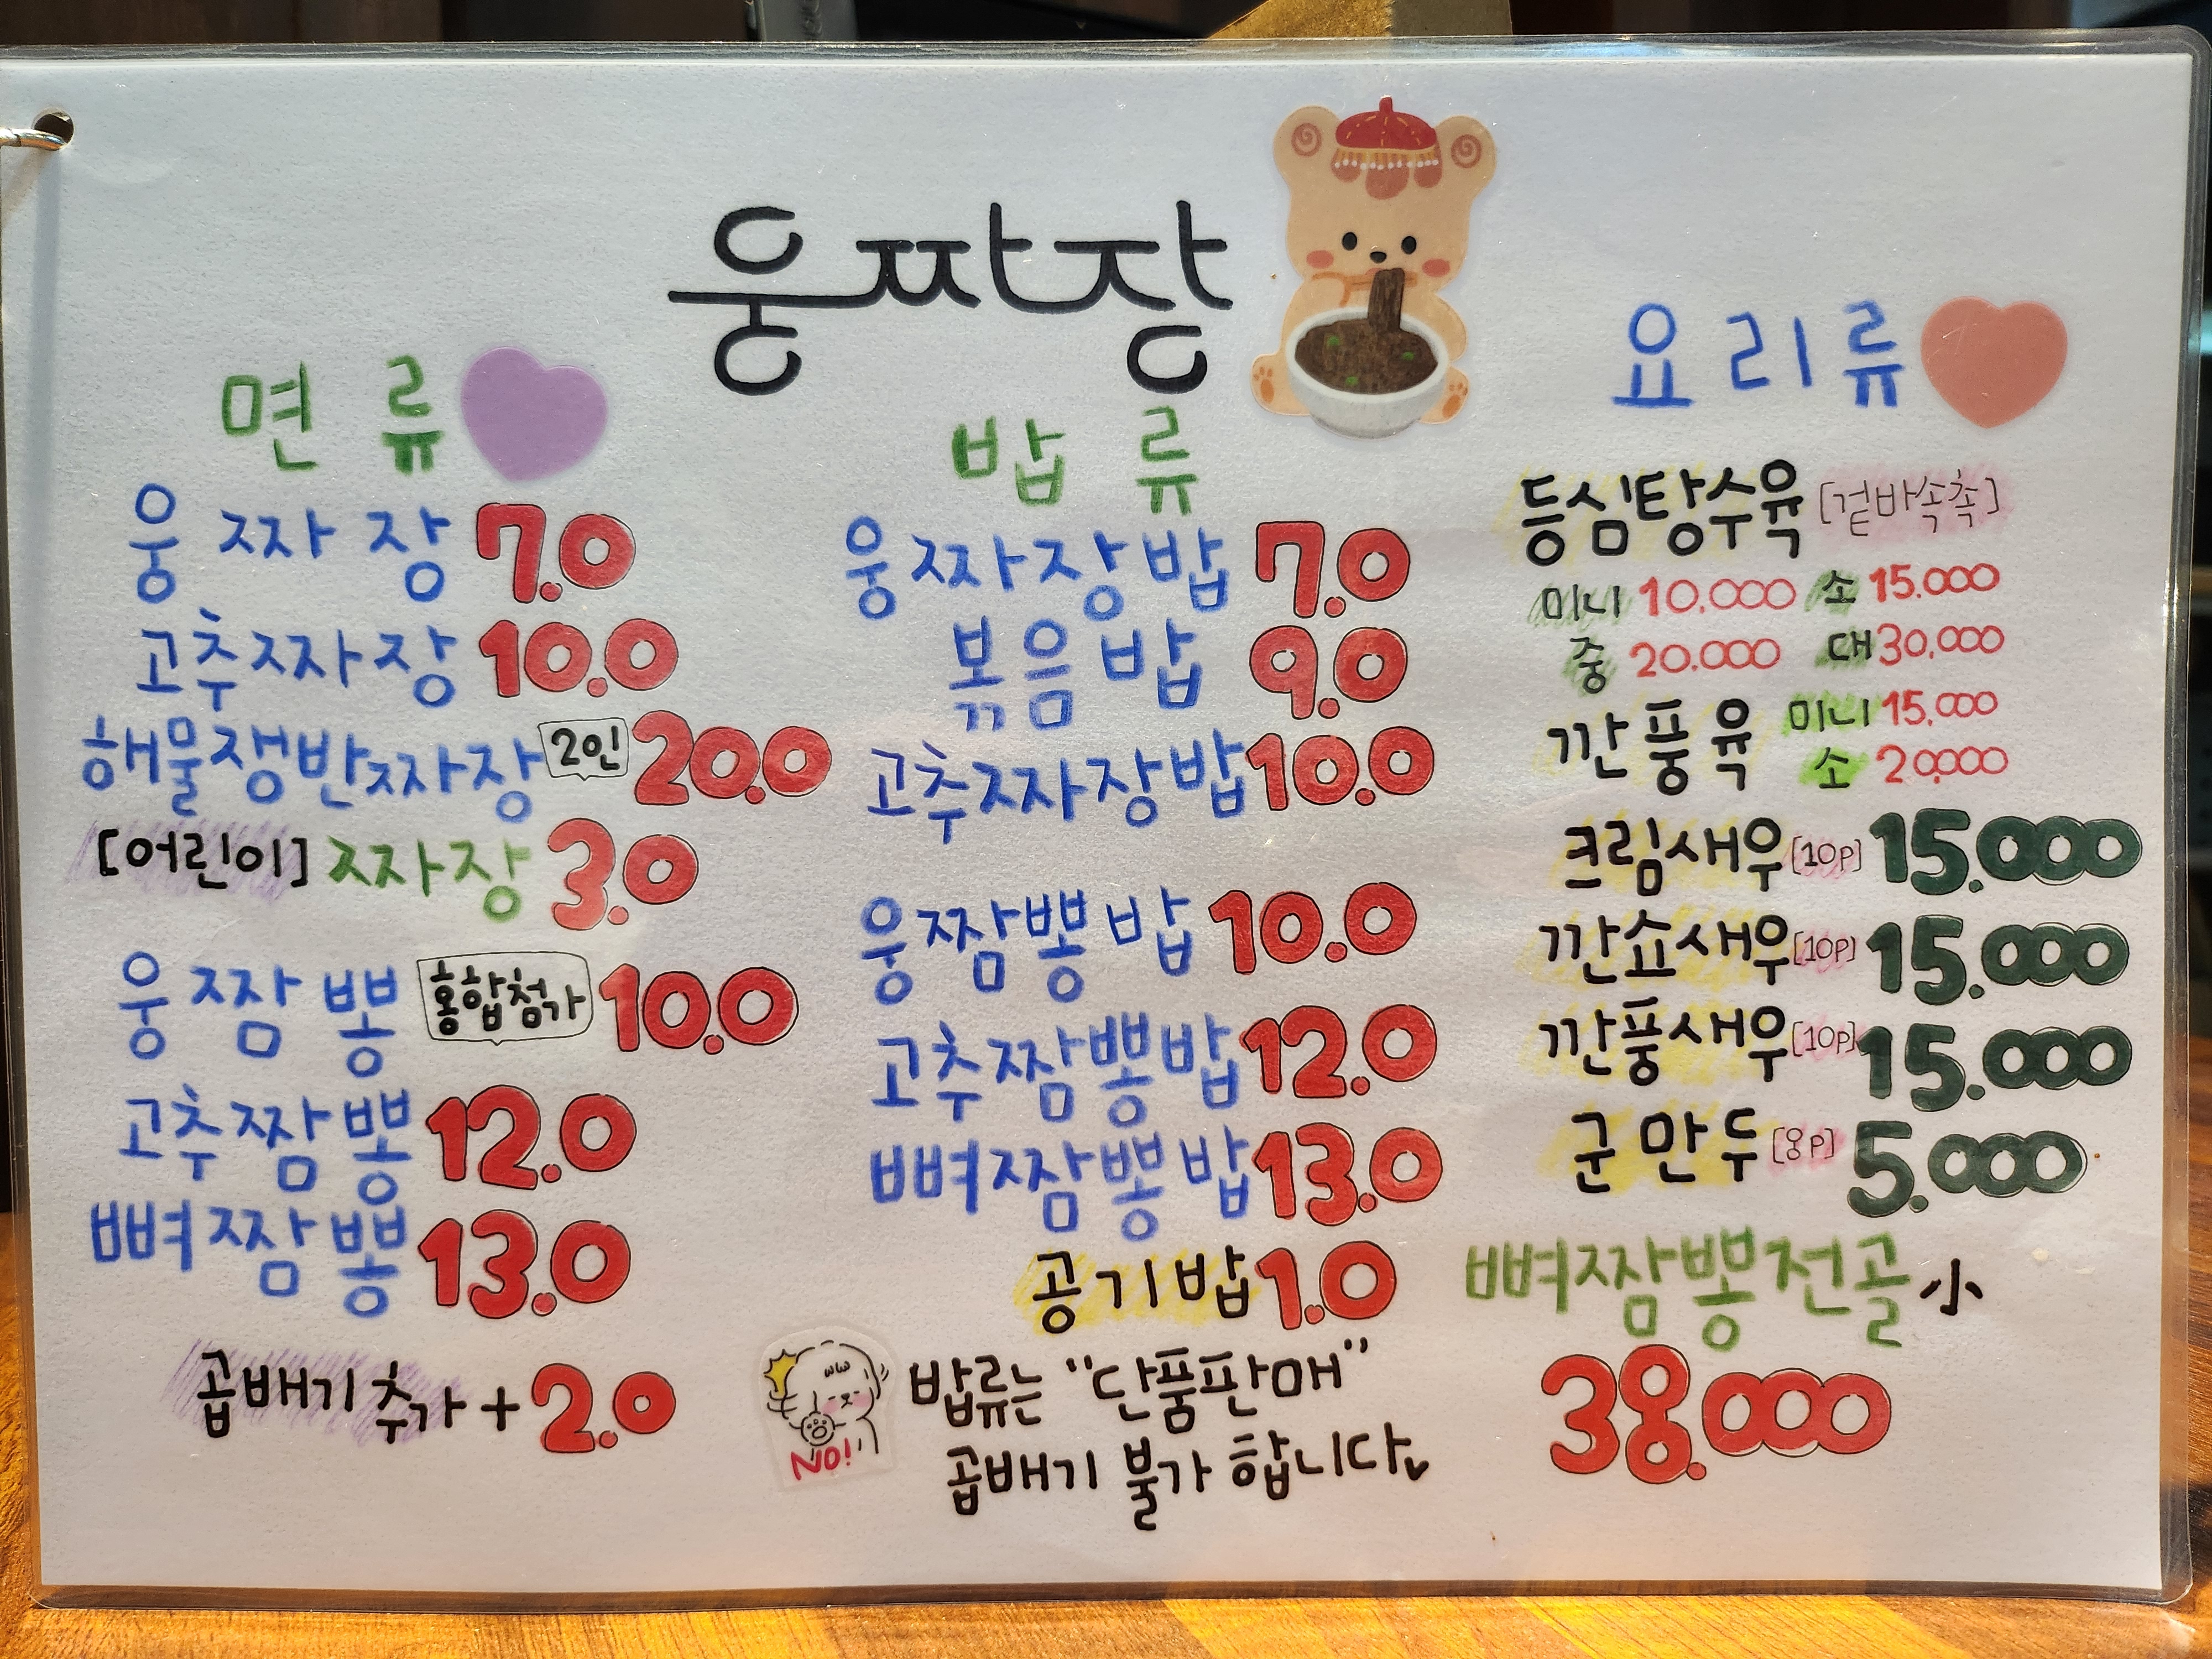 웅짜장
면류
웅짜장 7.0
고추짜장 10.0
해물쟁반짜장 2인 20.0
[어린이] 짜장 3.0
웅짬뽕 홍합첨가 10.0
고추짬뽕 12.0
뼈짬뽕 13.0
곱배기 추가 + 2.0
밥류
웅짜장밥 7.0
볶음밥 9.0
고추짜장밥 10.0
웅짬뽕밥 10.0
고추짬뽕밥 12.0
뼈짬뽕밥 13.0
공기밥 1.0
NO!
밥류는 "단품판매"
곱배기 불가 합니다
요리류
등심탕수육 [겉바속촉]
미니 10.000 소 15.000
중 20.000 대 30.000
깐풍육 미니 15.000
소 20.000
크림새우 [10P] 15.000
깐쇼새우 [10P] 15.000
깐풍새우 [10P] 15.000
군만두 [8P] 5.000
뼈짬뽕전골 小
38.000